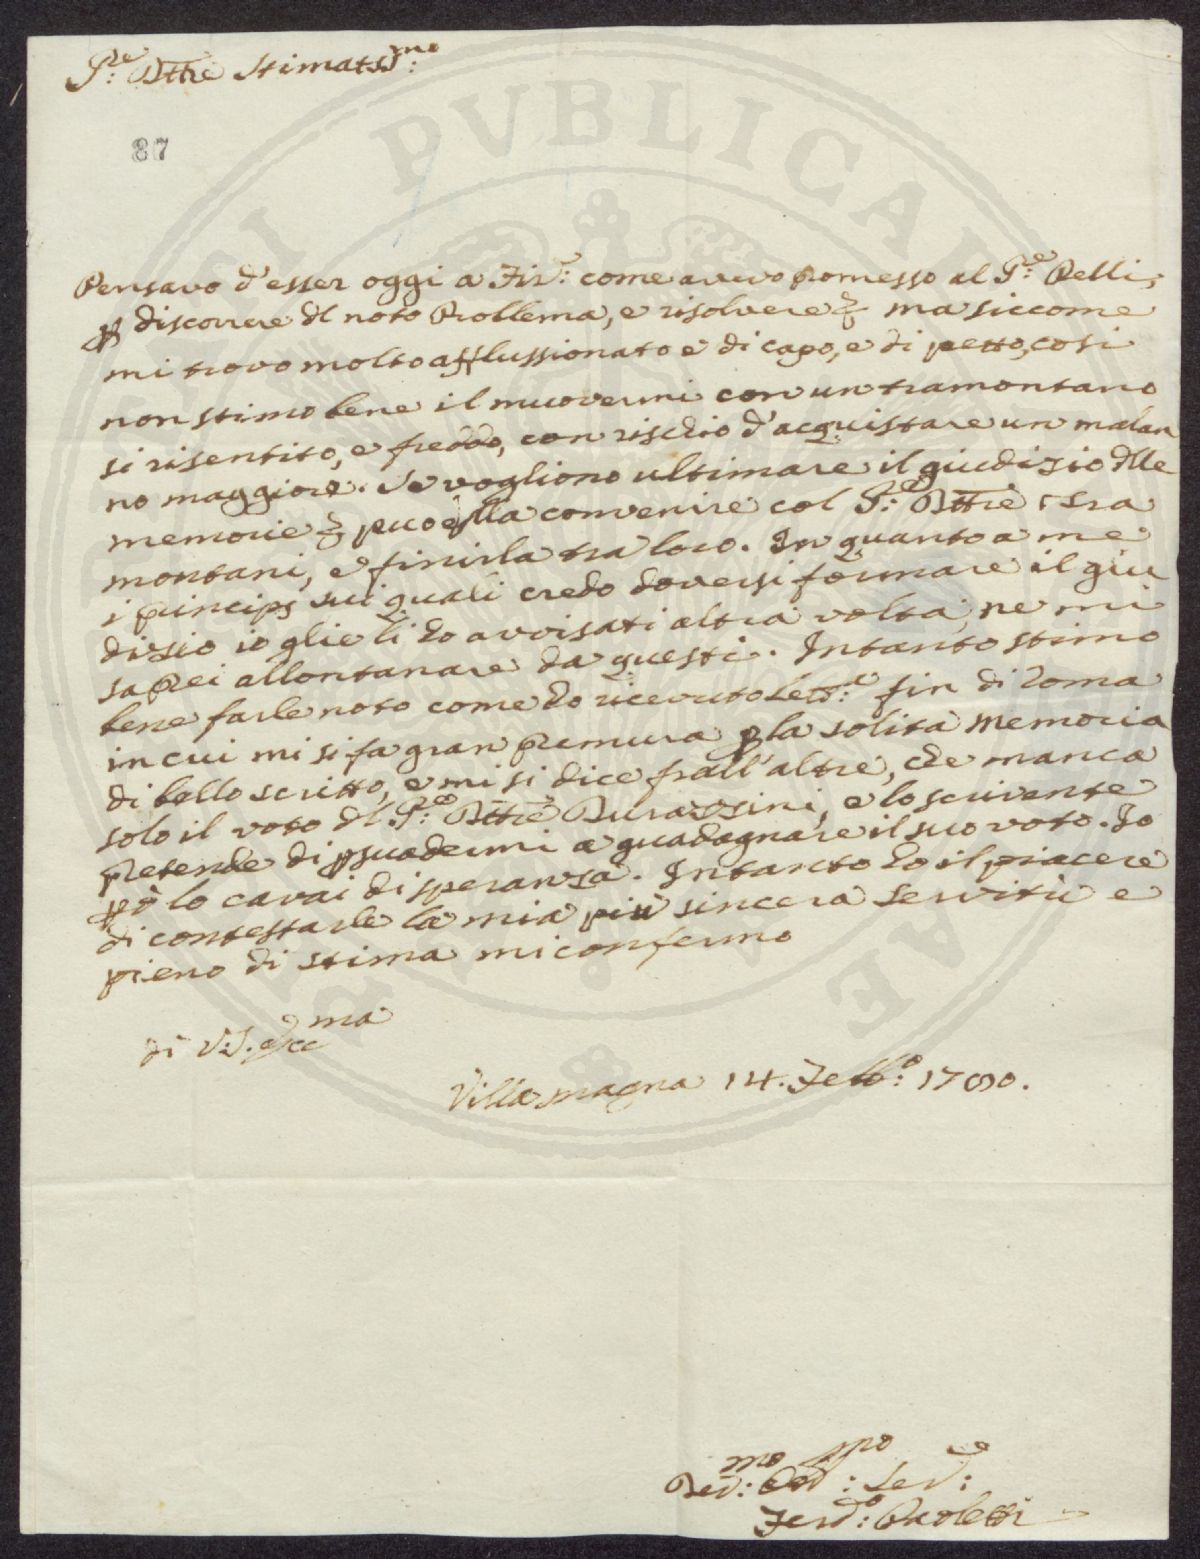 Sre: Dttre Stimatssmo:
87
Pensavo d'esser oggi a Fire: come avevo promesso al Sre: Pelli,
p discorrere dl noto Problema, e risolvere ma siccome
mi trovo molto afflussionato e di capo, e di petto, così
non stimo bene il muovermi con un tramontano
si risentito, e freddo, con rischio d'acquistare un malan
no maggiore. Se vogliono ultimare il giudizio dlle
memorie puo ella convenire col Sre: Dttre Tra
montani, e finirla tra loro. In quanto a me
i principj sui quali credo doversi formare il giu
dizio io glie li ho avvisati altra volta, ne mi
saprei allontanare da questi. Intanto stimo
bene farle noto come ho ricevuto Letta: fin di Roma
in cui mi si fa gran premura p la solita Memoria
di bello scritto, e mi si dice frall'altre, che manca
solo il voto dl Sre: Dttre Durazzini, e lo scrivente
pretende di psuadermi a guadagnare il suo voto. Io
pò lo cavai di speranza. Intanto ho il piacere
di contestarle la mia più sincera servitù e
pieno di stima mi confermo
di V: S. Eccma
Villa magna 14. Febbo: 1780.
Devmo: Obb: Serve:
Ferdo: Paoletti
PUBLICAE